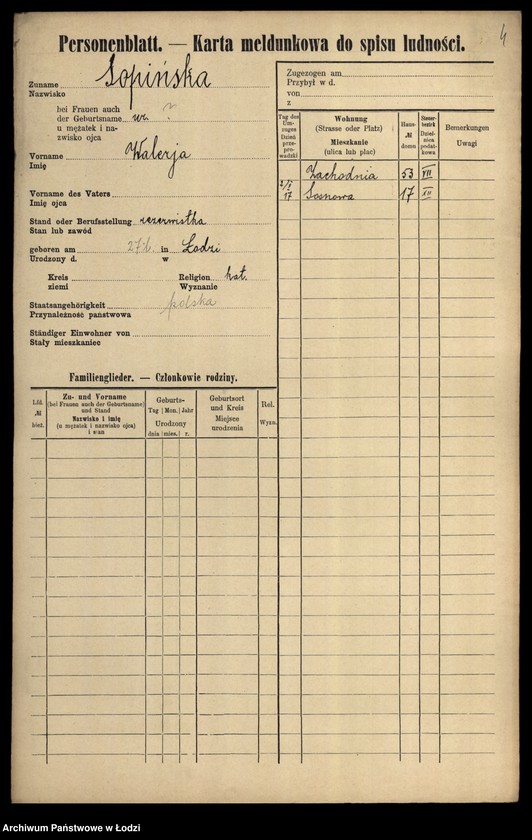 4
Personenblatt. — Karta meldunkowa do spisu ludności.
Zuname Łopińska
Nazwisko
bei Frauen auch
der Geburtsname ur. ?
u mężatek i na-
zwisko ojca
Vorname Walerja
Imię
Vorname des Vaters
Imię ojca
Stand oder Berufsstellung rezerwistka
Stan lub zawód
geboren am 27 l. in Łodzi
Urodzony d. w
Kreis Religion kat.
ziemi Wyznanie
Staatsangehörigkeit polska
Przynależność państwowa
Ständiger Einwohner von
Stały mieszkaniec
Zugezogen am
Przybył w d.
von
z
Tag des Um-zuges Dzień prze-prowadzki
Wohnung (Strasse oder Platz) Mieszkanie (ulica lub plac)
Haus- № domu
Steuer-bezirk Dziel-nica podat-kowa
Bemerkungen Uwagi
Zachodnia 53 VII
2/X 17 Sosnowa 17 XII
Familienglieder. — Członkowie rodziny.
Lfd. № bież.
Zu- und Vorname (bei Frauen auch der Geburtsname) und Stand Nazwisko i imię (u mężatek i nazwisko ojca) i stan
Geburts- Tag Mon. Jahr Urodzony dnia mies. r.
Geburtsort und Kreis Miejsce urodzenia
Rel. Wyzn.
Archiwum Państwowe w Łodzi